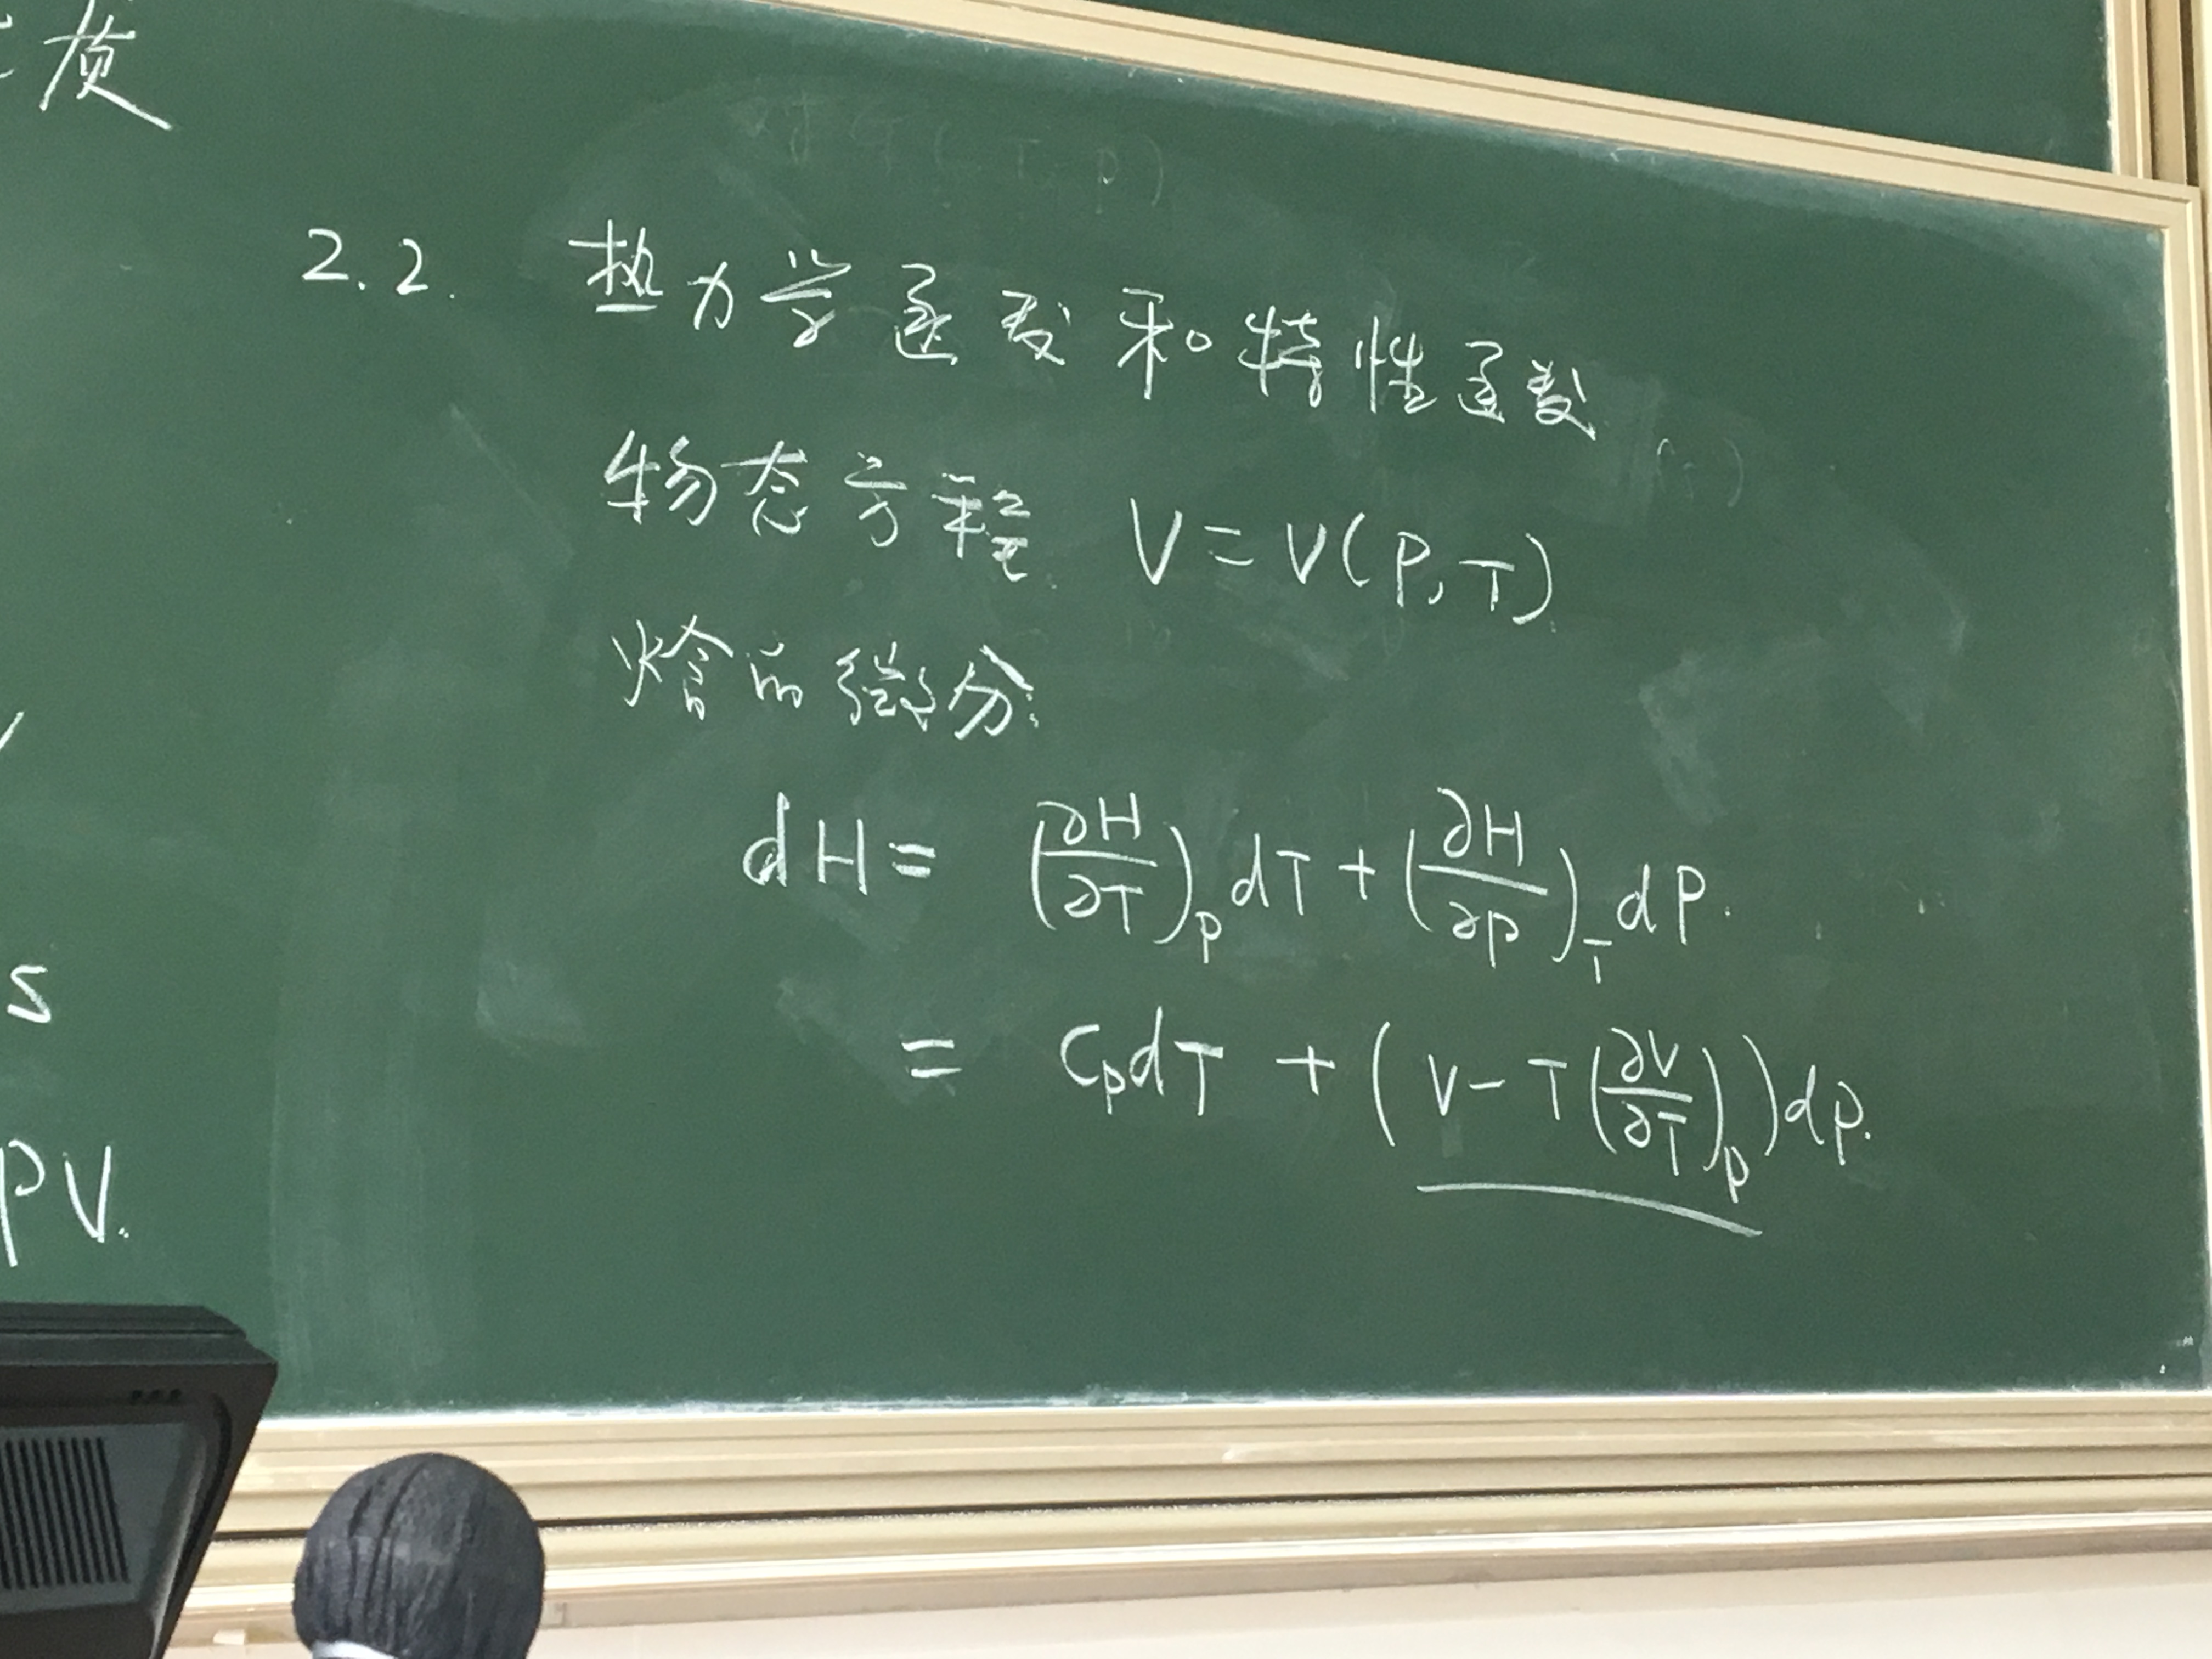 质
2.2. 热力学函数和特性函数
物态方程 V=V(P,T).
焓的微分:
dH = (∂H/∂T)_P dT + (∂H/∂P)_T dP.
= C_P dT + (V - T(∂V/∂T)_P) dP.
s
PV.